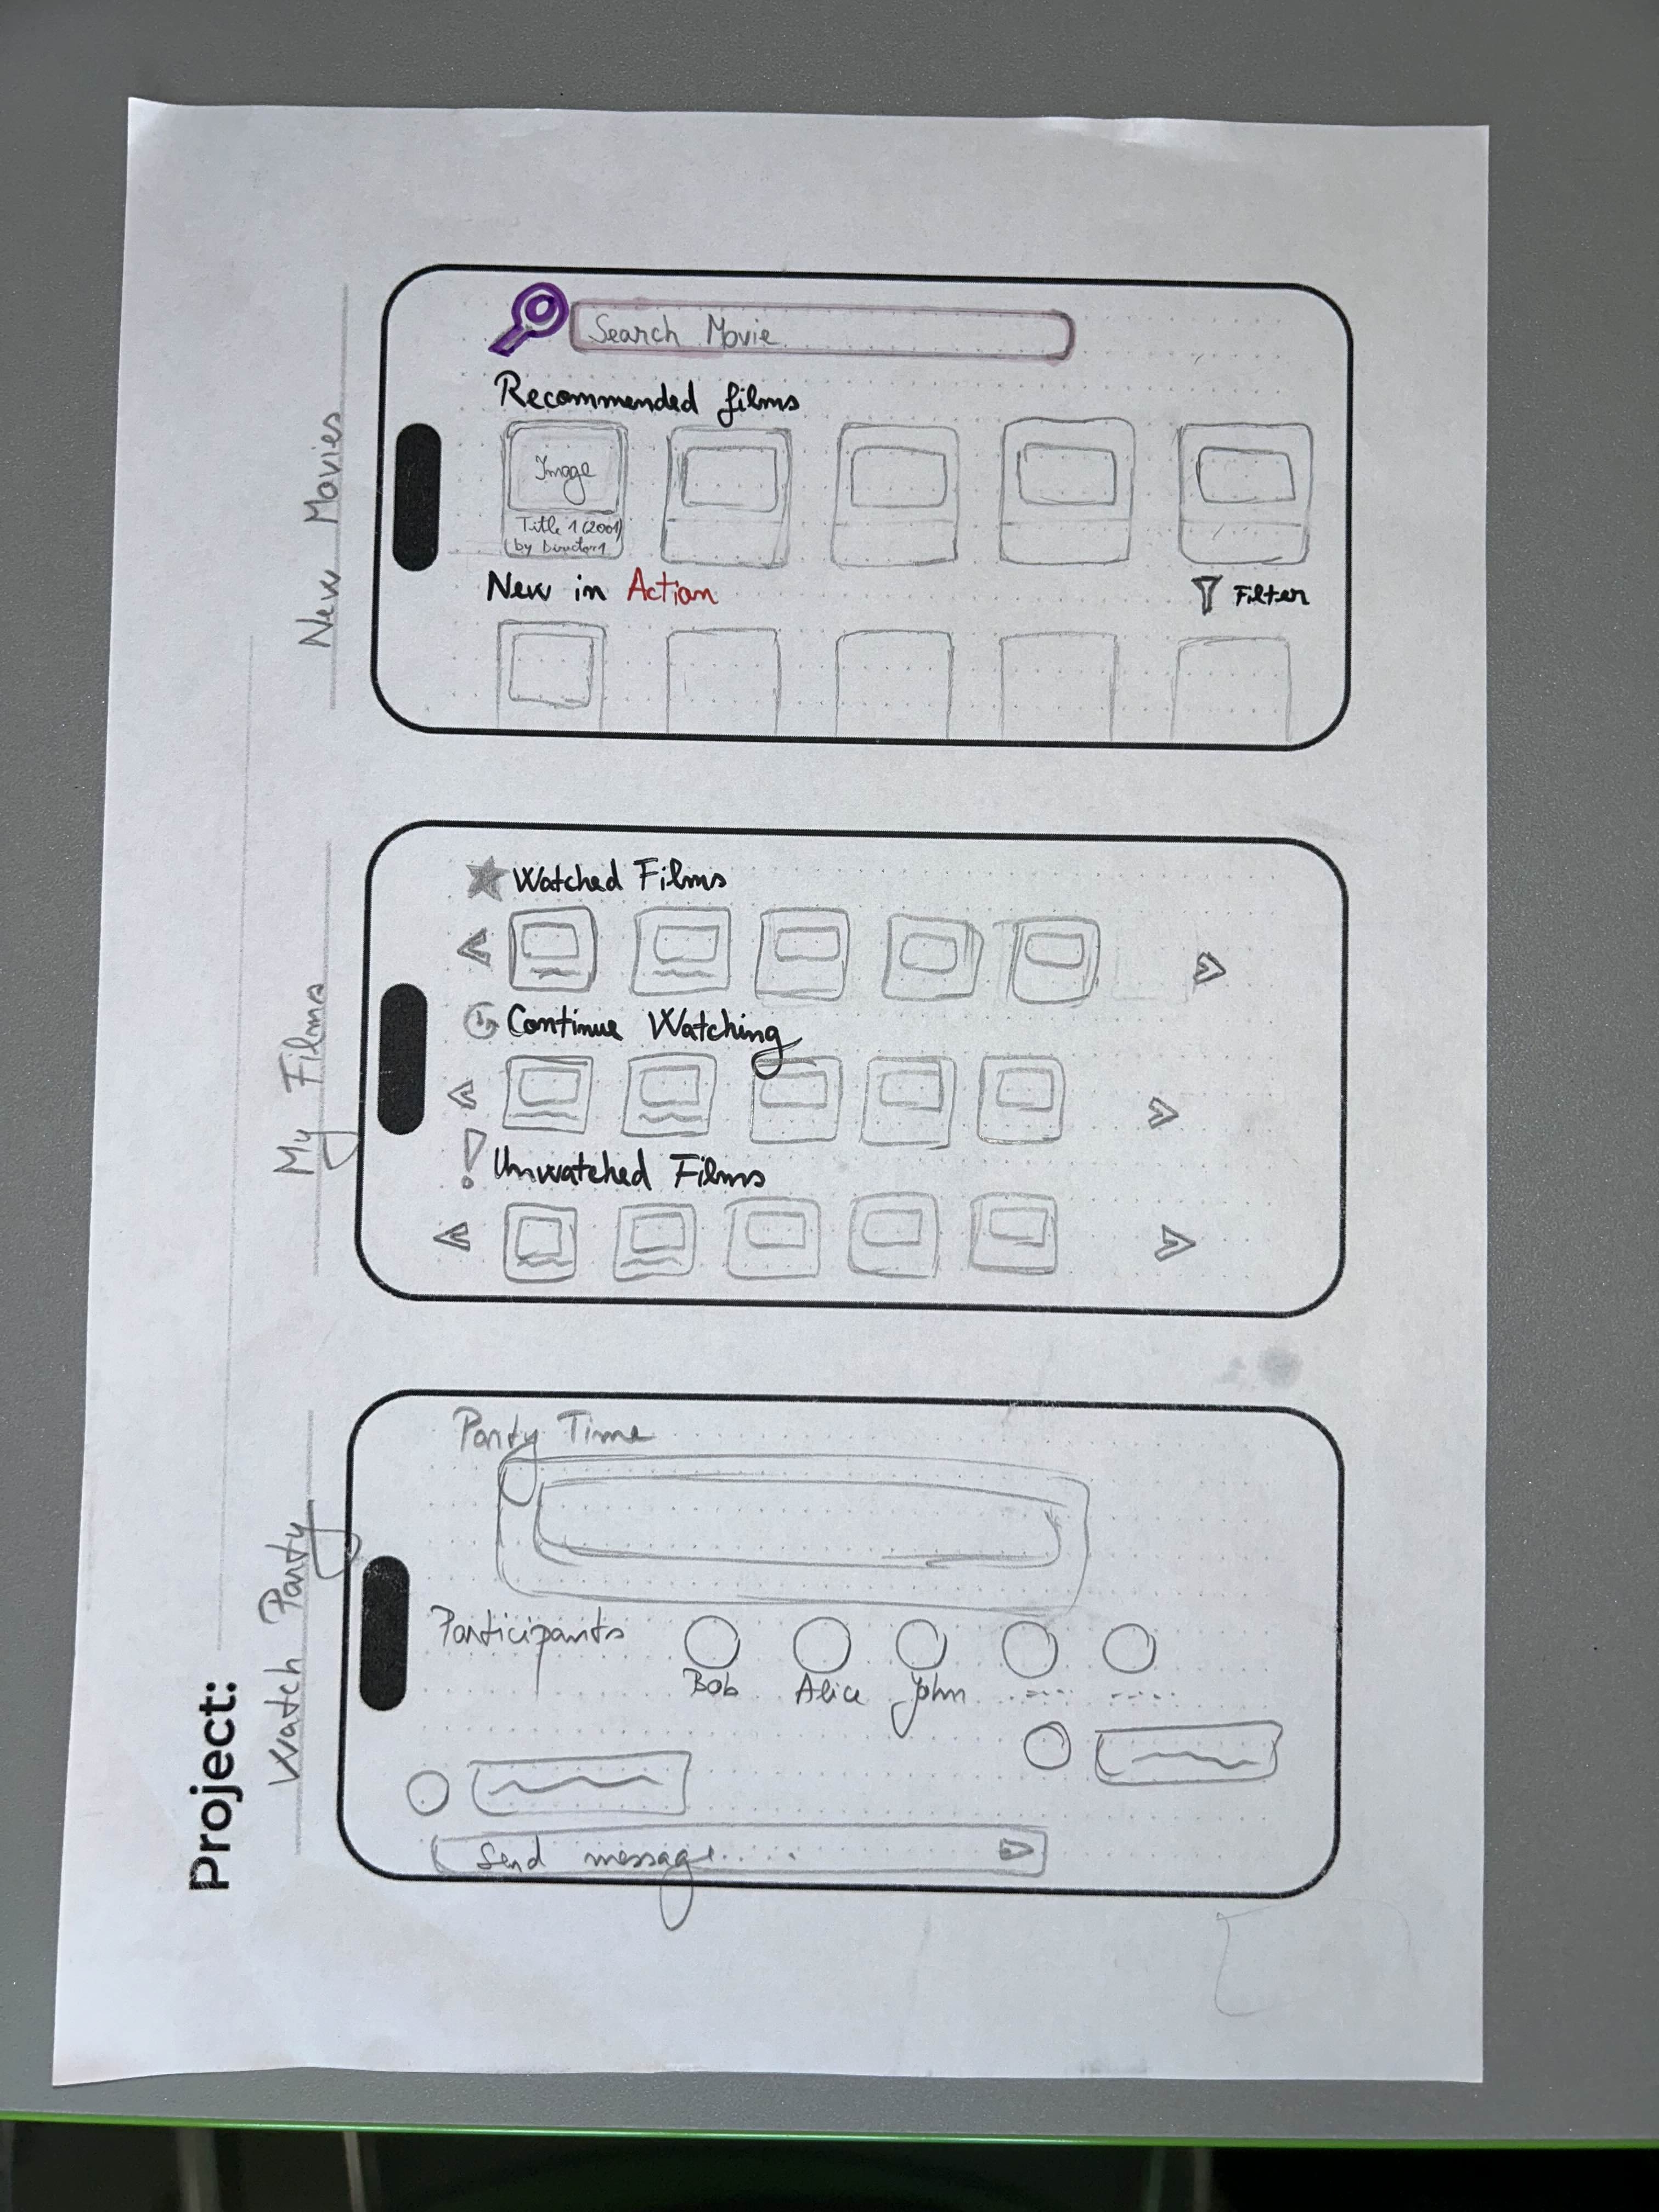 Project:
New Movies
Search Movie
Recommended films
Image
Title 1 (2001)
by Director 1
New in Action
Filter
My Films
Watched Films
Continue Watching
Unwatched Films
Watch Party
Party Time
Participants
Bob
Alice
John
Send message.....